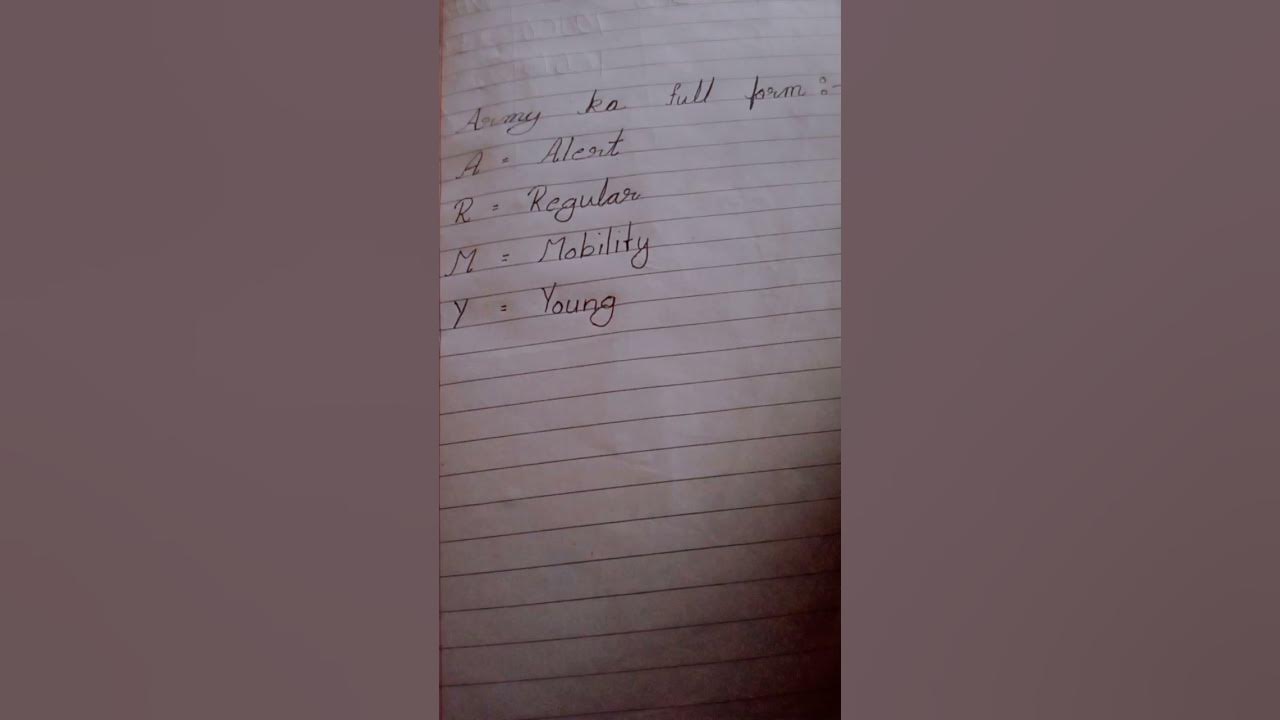 Army ka full form :-
A = Alert
R = Regular
M = Mobility
Y = Young